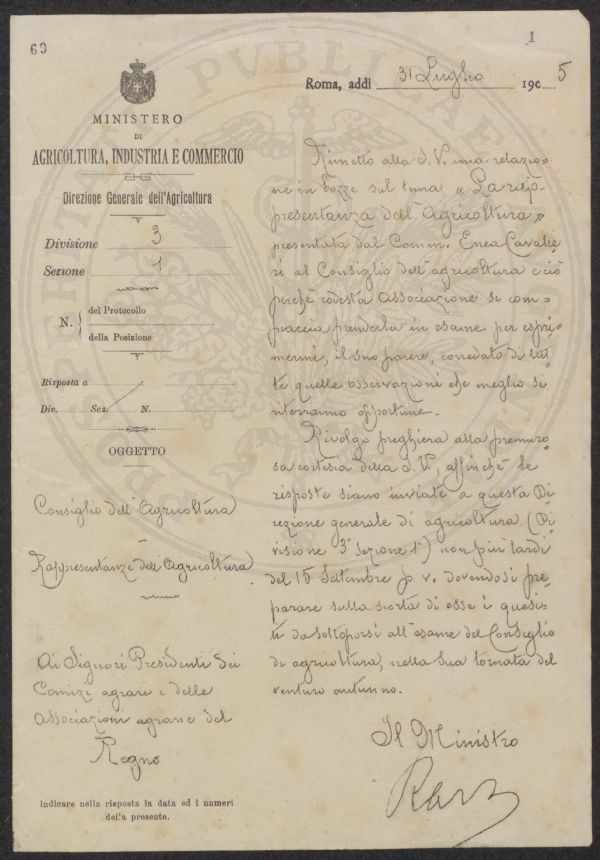 63
1
MINISTERO
DI
AGRICOLTURA, INDUSTRIA E COMMERCIO
Direzione Generale dell'Agricoltura
Divisione 3
Sezione 1
N. { del Protocollo
della Posizione
Risposta a
Div. Sez. N.
OGGETTO
Consiglio dell'Agricoltura
-
Rappresentanze dell'Agricoltura
Ai Signori Presidenti dei
Comizi agrari e delle
Associazioni agrarie del
Regno
Indicare nella risposta la data ed i numeri
della presente.
Roma, addì 31 Luglio 1905
Rimetto alla S. V. una relazio-
ne in bozze sul tema « La rap-
presentanza dell'Agricoltura »
presentata dal Comm. Enea Cavalie-
ri al Consiglio dell'agricoltura e ciò
perché codesta Associazione si com-
piaccia prenderla in esame per espri-
mermi, il suo parere, corredato di tut-
te quelle osservazioni che meglio si
riterranno opportune.
Rivolgo preghiera alla premuro-
sa cortesia della S. V., affinché le
risposte siano inviate a questa Di-
rezione generale di agricoltura (Di-
visione 3ª Sezione 1ª) non più tardi
del 15 Settembre p. v. dovendosi pre-
parare sulla scorta di esse i quesi-
ti da sottoporsi all'esame del Consiglio
di agricoltura, nella sua tornata del
venturo autunno.
Il Ministro
Rava